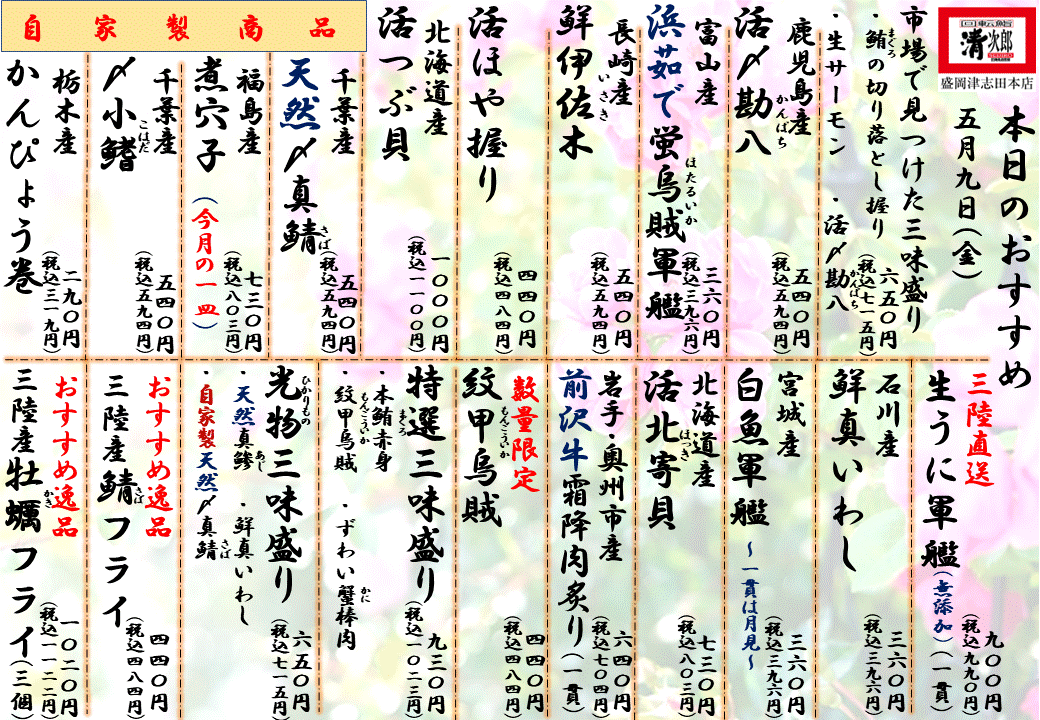 回転鮨
清次郎
盛岡津志田本店
本日のおすすめ
五月九日(金)
市場で見つけた三味盛り
・鮪の切り落とし握り
まぐろ
・生サーモン ・活〆勘八
かんぱち
六五〇円
(税込七一五円)
鹿児島産
活〆勘八
かんぱち
五四〇円
(税込五九四円)
富山産
浜茹で蛍烏賊軍艦
ほたるいか
三六〇円
(税込三九六円)
長崎産
鮮伊佐木
いさき
五四〇円
(税込五九四円)
活ほや握り
四四〇円
(税込四八四円)
北海道産
活つぶ貝
一〇〇〇円
(税込一一〇〇円)
自家製商品
千葉産
天然〆真鯖
さば
五四〇円
(税込五九四円)
福島産
煮穴子(今月の一皿)
七三〇円
(税込八〇三円)
千葉産
〆小鰭
こはだ
五四〇円
(税込五九四円)
栃木産
かんぴょう巻
二九〇円
(税込三一九円)
三陸直送
生うに軍艦(無添加)(一貫)
九〇〇円
(税込九九〇円)
石川産
鮮真いわし
三六〇円
(税込三九六円)
宮城産
白魚軍艦 ～一貫は月見～
三六〇円
(税込三九六円)
北海道産
活北寄貝
ほっき
七三〇円
(税込八〇三円)
岩手・奥州市産
前沢牛霜降肉炙り(一貫)
六四〇円
(税込七〇四円)
数量限定
紋甲烏賊
もんこういか
四四〇円
(税込四八四円)
特選三味盛り
・本鮪赤身 ・ずわい蟹棒肉
まぐろ
かに
・紋甲烏賊
もんこういか
九三〇円
(税込一〇二三円)
光物三味盛り
ひかりもの
・天然真鯵 ・鮮真いわし
あじ
・自家製天然〆真鯖
さば
六五〇円
(税込七一五円)
おすすめ逸品
三陸産鯖フライ
さば
四四〇円
(税込四八四円)
おすすめ逸品
三陸産牡蠣フライ(三個)
かき
一〇二〇円
(税込一一二二円)